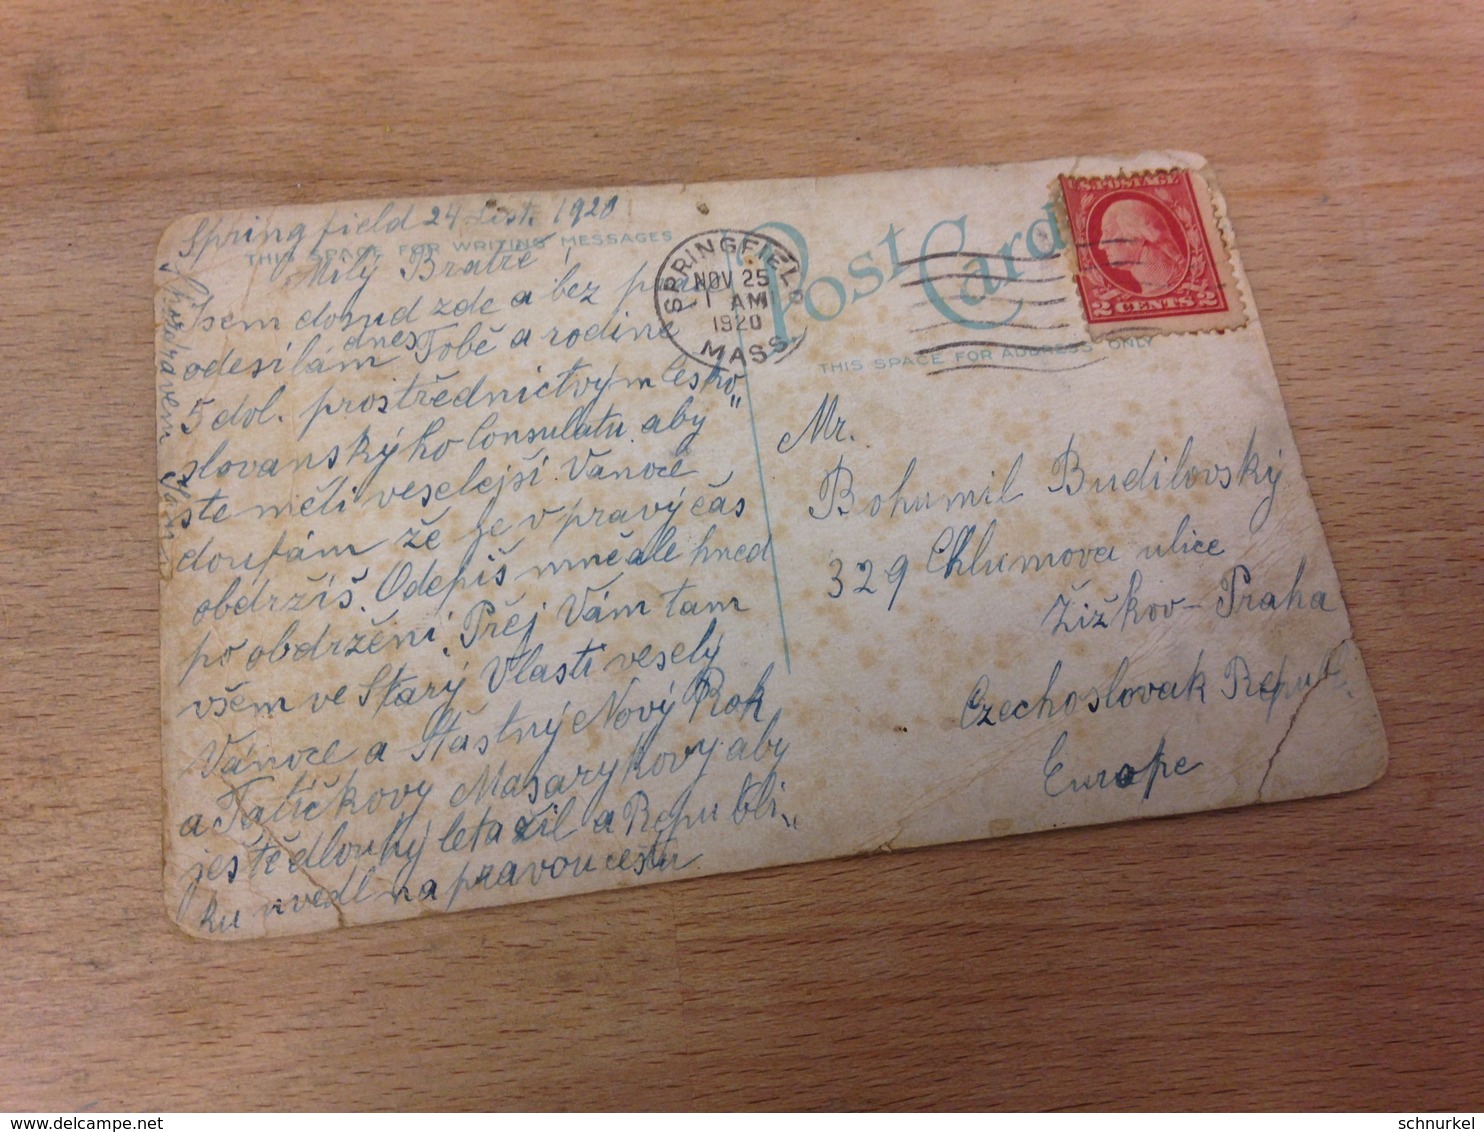 Springfield 24 List. 1920
THIS SPACE FOR WRITING MESSAGES
Milý Bratře!
Jsem dosud zde a bez
odesílám dnes Tobě a rodině
5 dol. prostřednictvým česko„
slovanskýho Consulatu aby
ste měli veselejší Vánoce
doufám že je v pravý čas
obdržíš. Odepiš mně ale hned
po obdržení, Přej Vám tam
všem ve Starý Vlasti veselý
Vánoce a Štastný Nový Rok
a Tatíčkovy Masarykovy aby
ještě dlouhý leta žil a Republi„
ku vedl na pravou cestu
S pozdravem
SPRINGFIELD
NOV 25
1 AM
1920
MASS.
Post Card
U.S. POSTAGE
2 CENTS 2
THIS SPACE FOR ADDRESS ONLY
Mr.
Bohumil Budilovský
329 Chlumova ulice
Žižkov - Praha
Czechoslovak Republ.
Europe
schnurkel